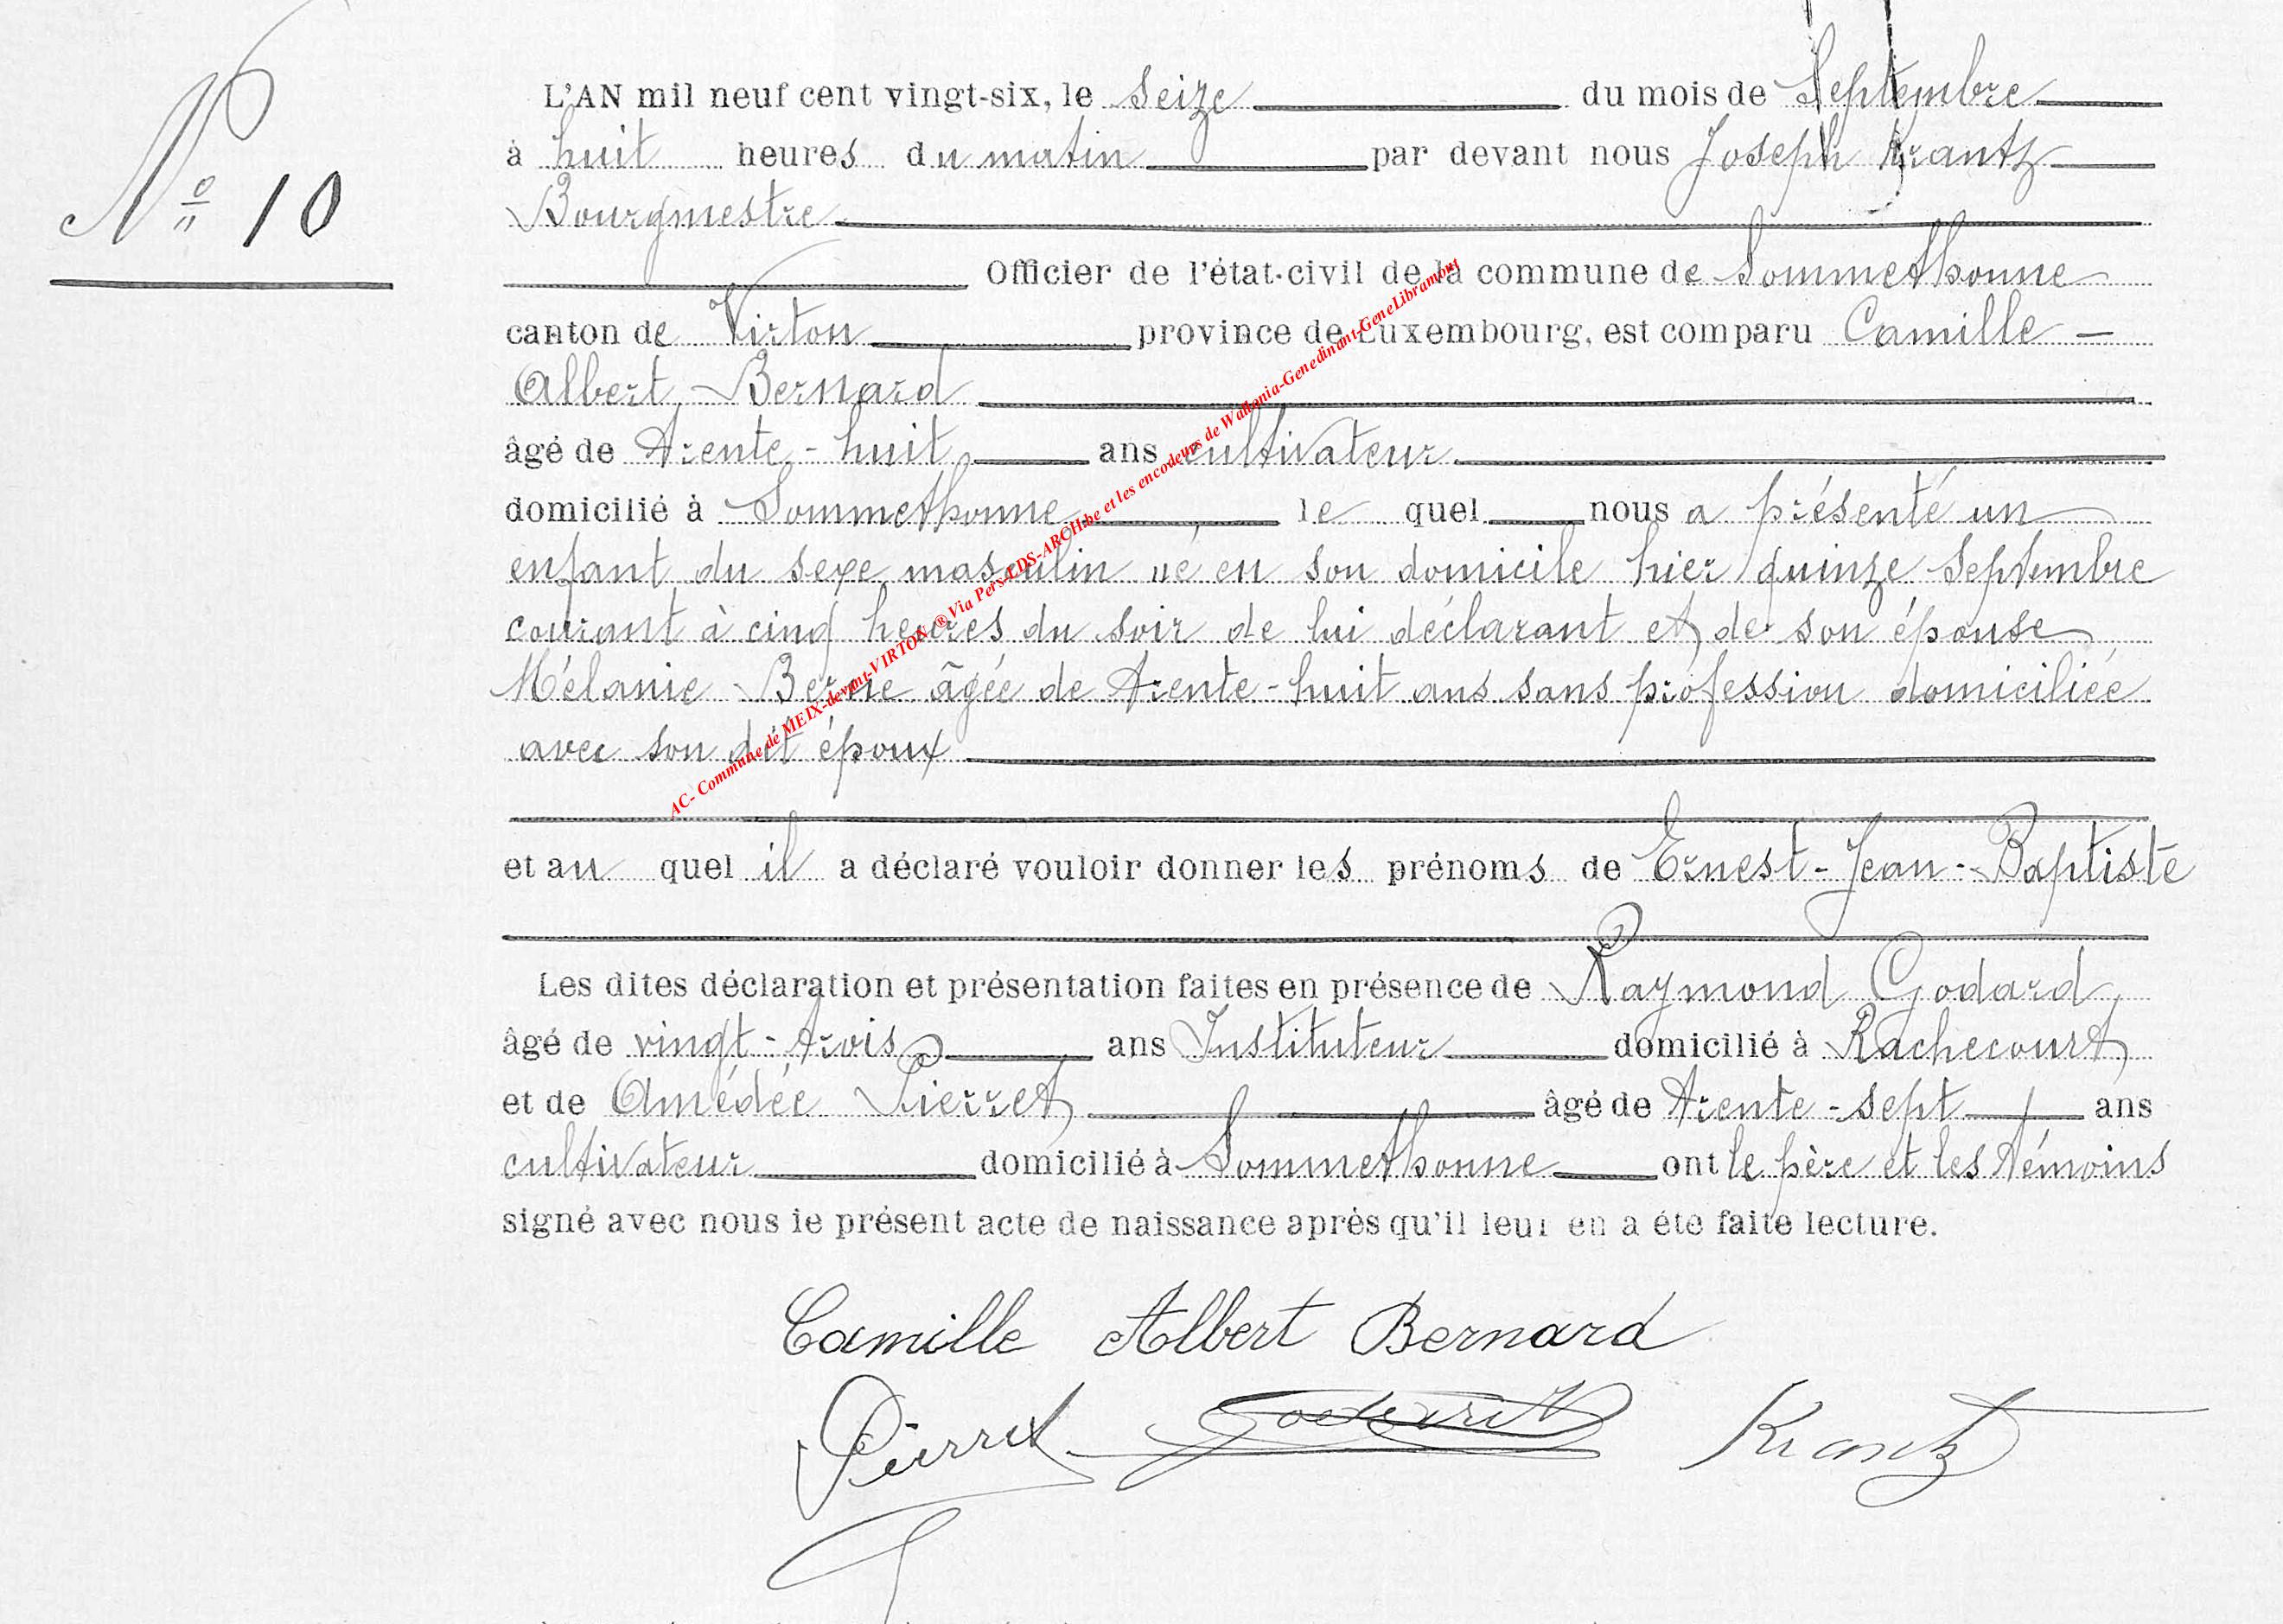 N° 10
L'AN mil neuf cent vingt-six, le seize du mois de Septembre
à huit heures du matin par devant nous Joseph Krantz
Bourgmestre
Officier de l'état-civil de la commune de Sommethonne
canton de Virton province de Luxembourg, est comparu Camille -
Albert Bernard
âgé de trente-huit ans cultivateur
domicilié à Sommethonne le quel nous a présenté un
enfant du sexe masculin né en son domicile hier quinze Septembre
courant à cinq heures du soir de lui déclarant et de son épouse
Mélanie Berne âgée de trente-huit ans sans profession domiciliée
avec son dit époux
et au quel il a déclaré vouloir donner les prénoms de Ernest-Jean-Baptiste
Les dites déclaration et présentation faites en présence de Raymond Godard
âgé de vingt-trois ans Instituteur domicilié à Rachecourt
et de Amédée Pierret âgé de trente-sept ans
cultivateur domicilié à Sommethonne ont le père et les témoins
signé avec nous le présent acte de naissance après qu'il leur en a été faite lecture.
Camille Albert Bernard
Pierret Krantz
AC- Commune de MEIX-devant-VIRTON ® Via Pers-LDS-ARCH.be et les encodeurs de Wallonia-Genedinant-GeneLibramont